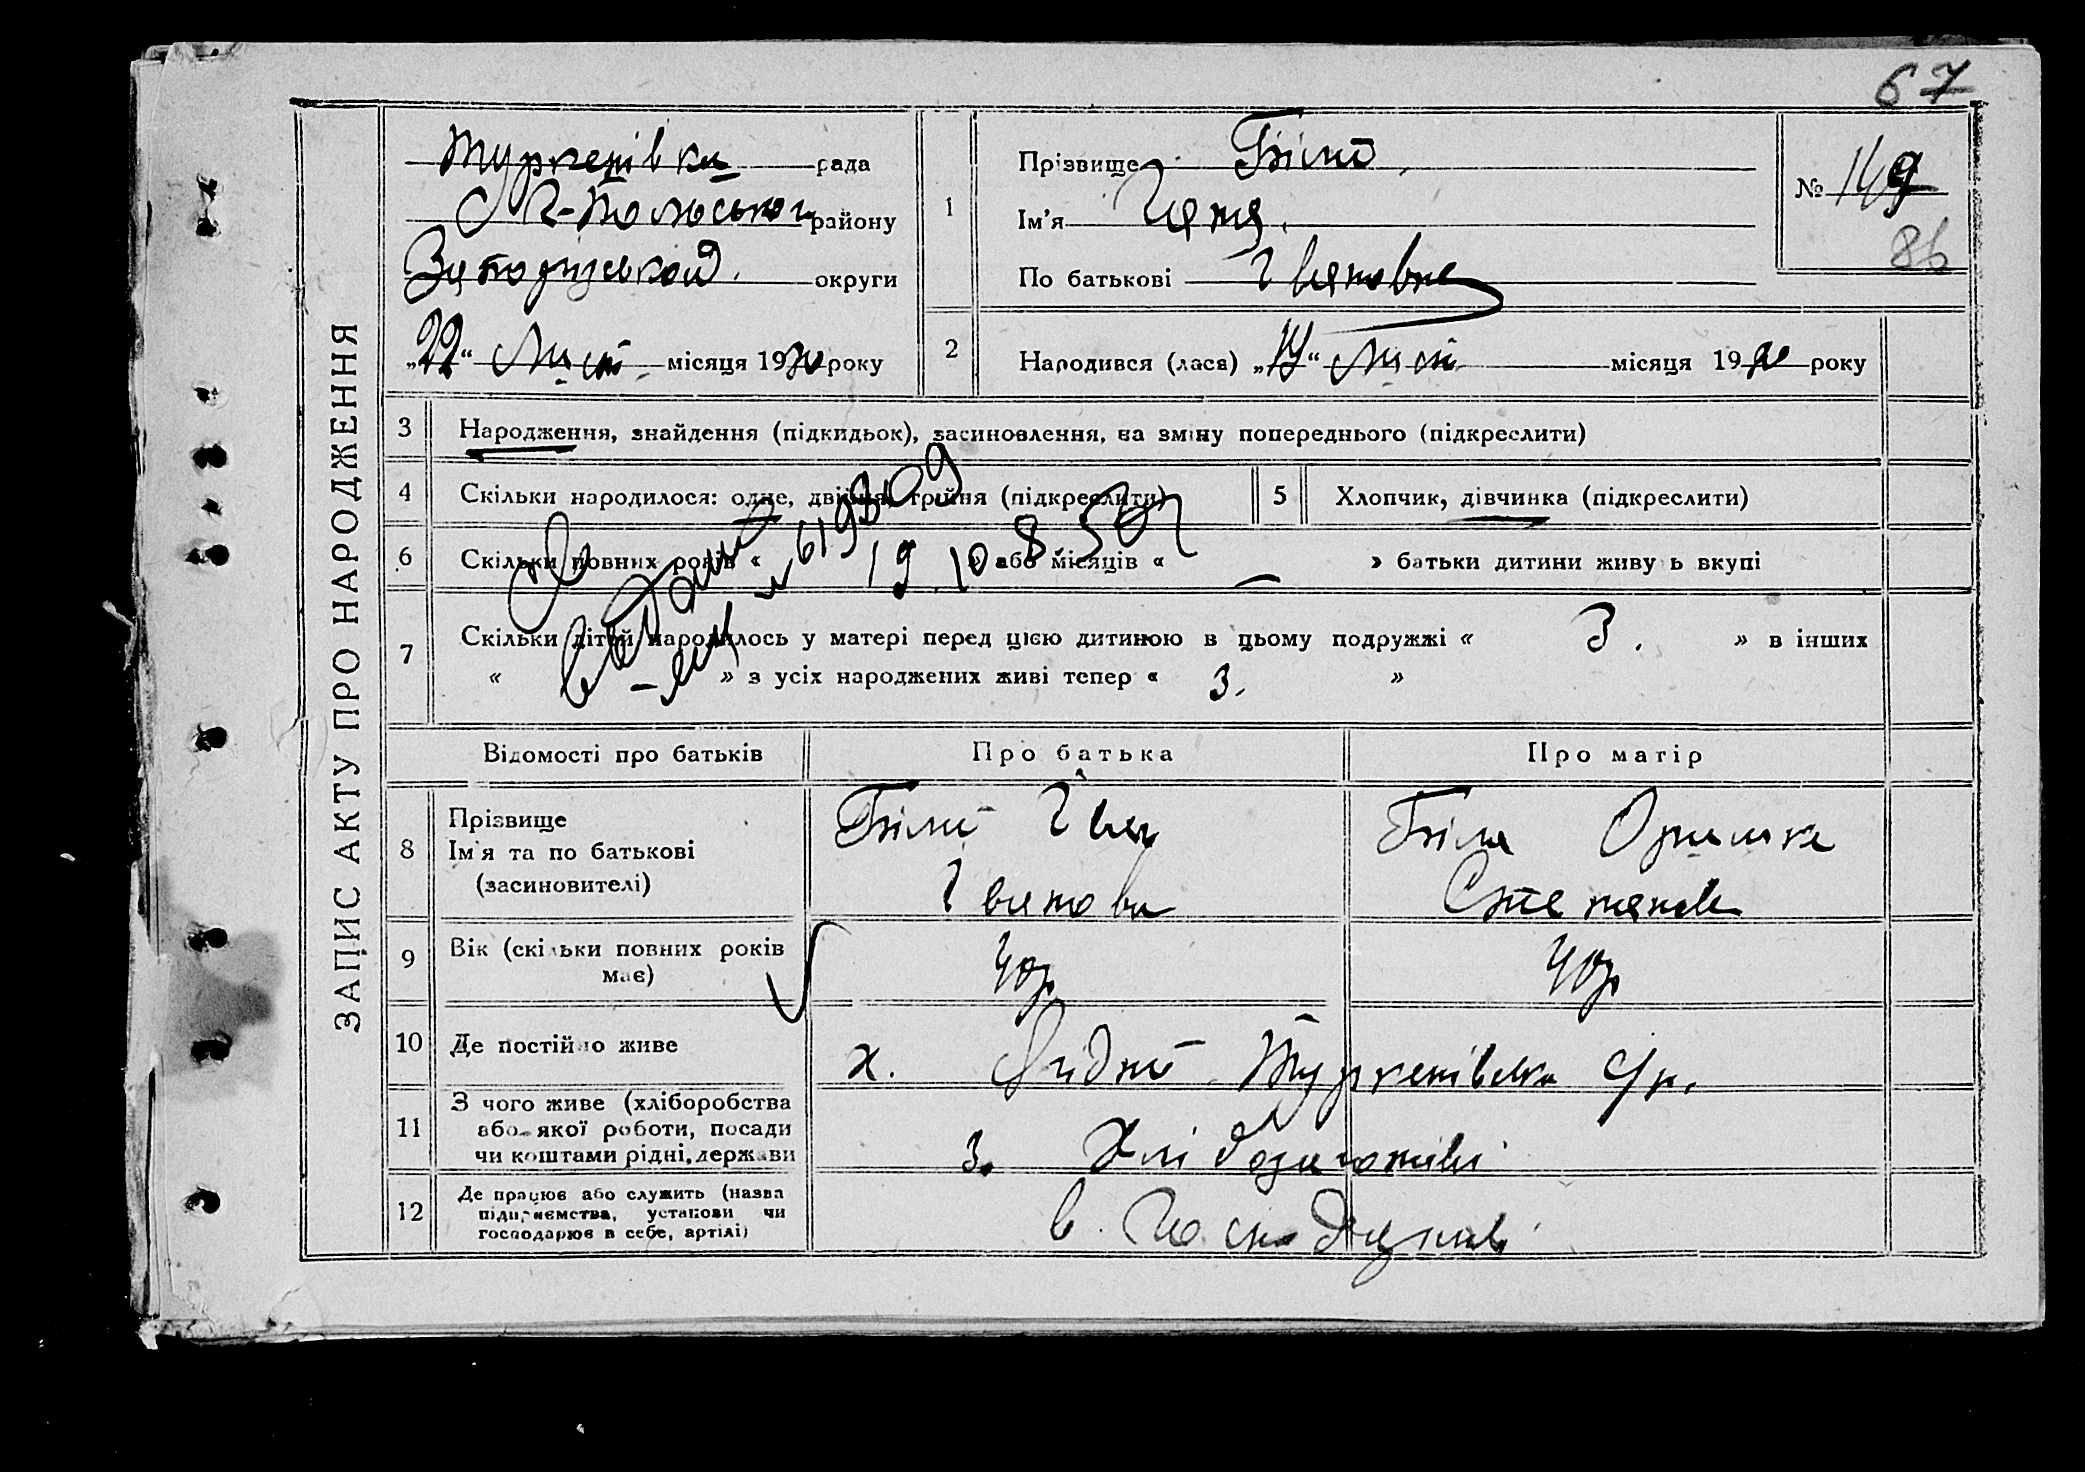 67
ЗАПИС АКТУ ПРО НАРОДЖЕННЯ
Туркенівка рада
району
Запорізькой округи
„22“ Лист місяця 1930 року
1
Прізвище Білий
Ім'я
По батькові Івановна
№ 149
86
2
Народився (лася) „14“ Лист місяця 19 року
3
Народження, знайдення (підкидьок), засиновлення, на зміну попереднього (підкреслити)
4
Скільки народилося: одне, двійня, трійня (підкреслити)
5
Хлопчик, дівчинка (підкреслити)
6
Скільки повних років « » або місяців « — » батьки дитини живуть вкупі
619309
19 10 8 50 г
7
Скільки дітей народилось у матері перед цією дитиною в цьому подружжі « 3. » в інших
« — » з усіх народжених живі тепер « 3. »
Відомості про батьків
Про батька
Про матір
8
Прізвище
Ім'я та по батькові
(засиновителі)
Білий Іван
Іванови
Біла Оришка
Степанов
9
Вік (скільки повних років
має)
40р.
40р.
10
Де постійно живе
х. Рідний Туркенівська с/р.
11
З чого живе (хліборобства
або якої роботи, посади
чи коштами рідні, держави
з. Хлі
12
Де працює або служить (назва
підприємства, установи чи
господарює в себе, артілі)
в.